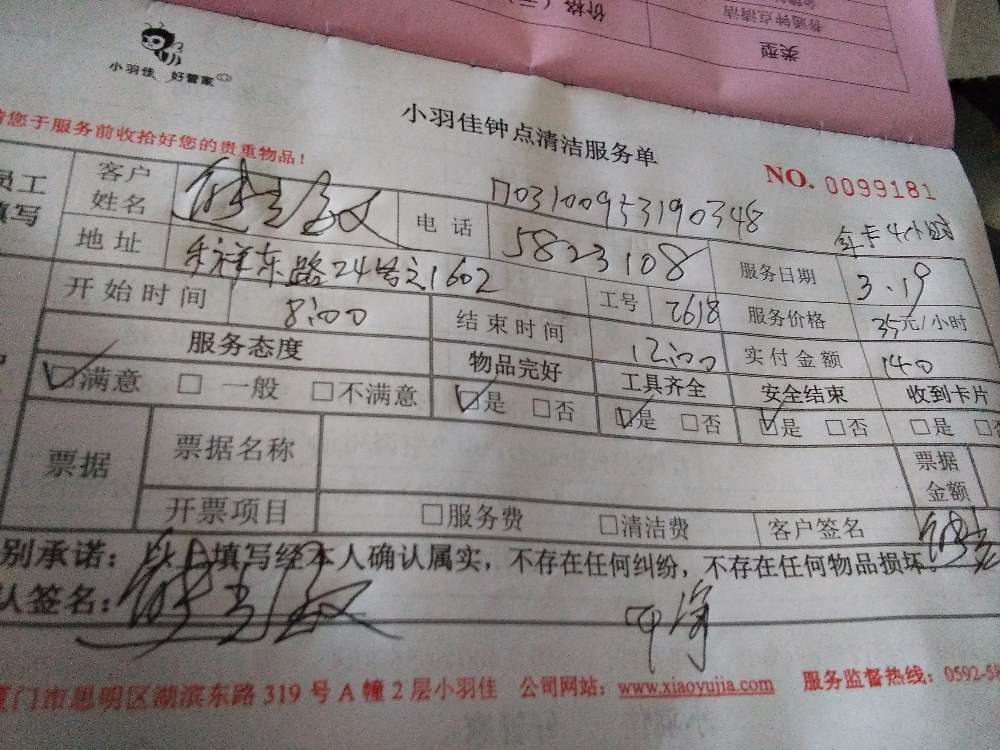 价格(元
金牌
普通钟点清洁
类型
小羽佳 好管家
小羽佳钟点清洁服务单
请您于服务前收拾好您的贵重物品!
NO. 0099181
17031009533190348
年卡4小时
员工
填写
客户
姓名
电话
5823108
服务日期
3.19
地址
东路24号之1602
工号
2618
服务价格
35元/小时
开始时间
8:00
结束时间
12:00
实付金额
140
服务态度
物品完好
工具齐全
安全结束
收到卡片
☑满意 □ 一般 □不满意
☑是 □否
☑是 □否
☑是 □否
□是 □否
票据
票据名称
票据
金额
开票项目
□服务费
□清洁费
客户签名
别承诺:以上填写经本人确认属实,不存在任何纠纷,不存在任何物品损坏。
人签名:
厦门市思明区湖滨东路 319 号 A 幢 2 层小羽佳 公司网站:www.xiaoyujia.com 服务监督热线:0592-5